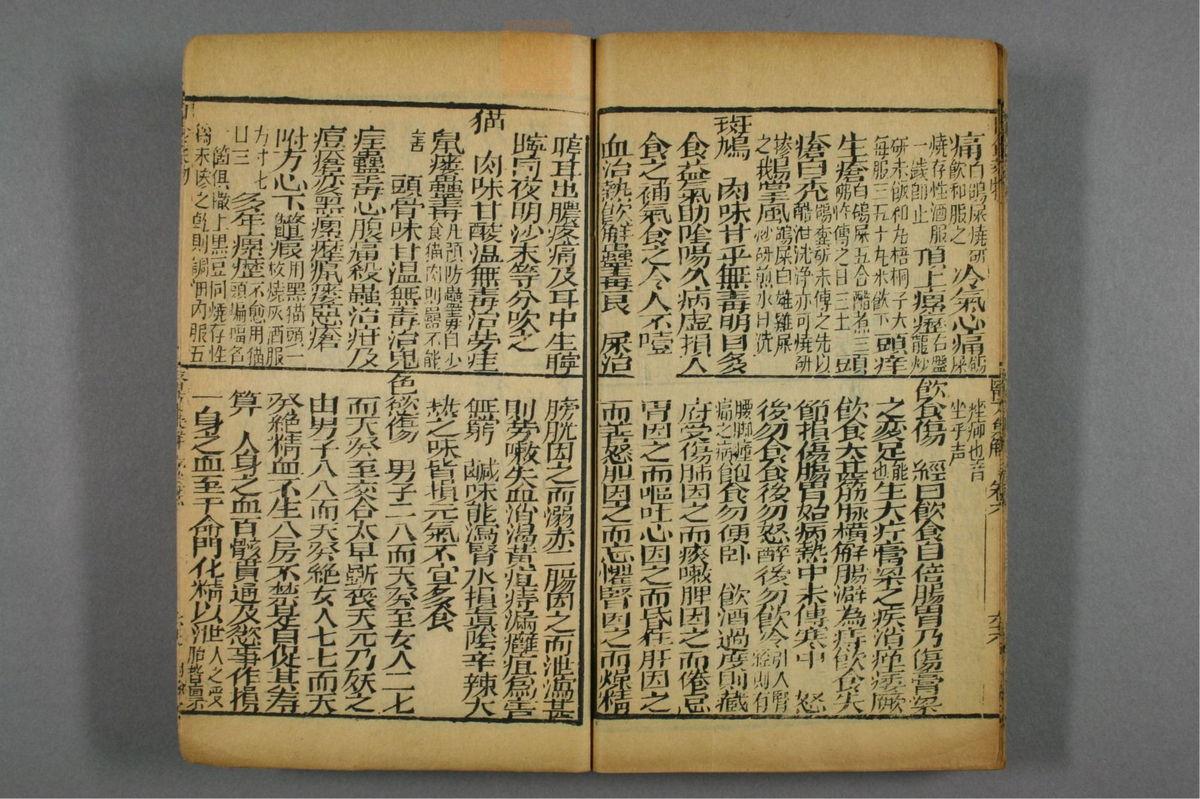 痛白鴿屎燒研飲和服之冷氣心痛鴿屎
燒存性酒服一錢即止頂上瘰癧右盤龍炒
研末飯和丸梧桐子大每服三五十丸米飲下頭痒
生瘡白鴿屎五合醋煮三沸杵傅之日三上頭
瘡白禿鴿糞研末傅之先以酷泔洗淨亦可燒研
摻之鵝掌風鴿屎白雄雞屎炒研煎水日洗
斑鳩　肉味甘平無毒明目多
食益氣助陰陽久病虛損人
食之補氣食之令人不噎
血治熱飲解蠱毒良　屎治
聤耳出膿疼痛及耳中生聤
聹同夜明沙末等分吹之
猫　肉味甘酸溫無毒治勞疰
鼠瘻蠱毒凡預防蠱毒自少食猫肉則蠱不能
害　頭骨味甘溫無毒治鬼
疰蠱毒心腹痛殺蟲治疳及
痘瘡變黑瘰癧鼠瘻惡瘡
附方心下鱉瘕用黑猫頭一枚燒灰酒服
方寸七日三多年瘰癧不愈用猫頭蝙蝠各
一箇俱撒上黑豆同燒存性為末摻之乾則調油內服五
痤痱也音坐乎声
飲食傷　經曰飲食自倍腸胃乃傷膏粱
之變足能也生大疔膏粱之疾消痺痿厥
飲食大甚筋脉橫解腸澼為痔飲食失
節損傷腸胃始病熱中末傳寒中　怒
後勿食食後勿怒醉後勿飲冷引入腎經則有
腰脚腫痛之病飽食勿便卧　飲酒過度則藏
府受傷肺因之而痰嗽脾因之而倦怠
胃因之而嘔吐心因之而昏狂肝因之
而善怒胆因之而忘懼腎因之而爍精
膀胱因之而溺赤二腸因之而泄瀉甚
則勞嗽失血消渴黃疸痔漏癰疽爲害
無窮　鹹味能瀉腎水損眞陰辛辣大
熱之味皆損元氣不宜多食
色慾傷　男子二八而天癸至女人二七
而天癸至交合太早斲喪天元乃夭之
由男子八八而天癸絶女人七七而天
癸絶精血不生入房不禁是自促其壽
算　人身之血百骸貫通及慾事作撮
一身之血至于命門化精以泄人之受胎皆禀